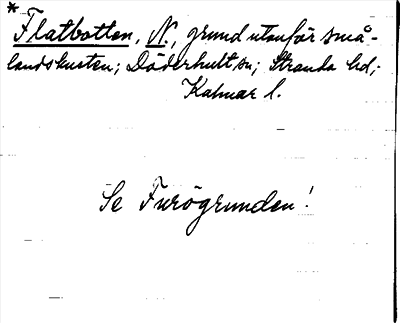 *
Flatbotten, N, grund utanför små-
landskusten; Döderhult sn; Stranda hd;
Kalmar l.
Se Furögrunden!